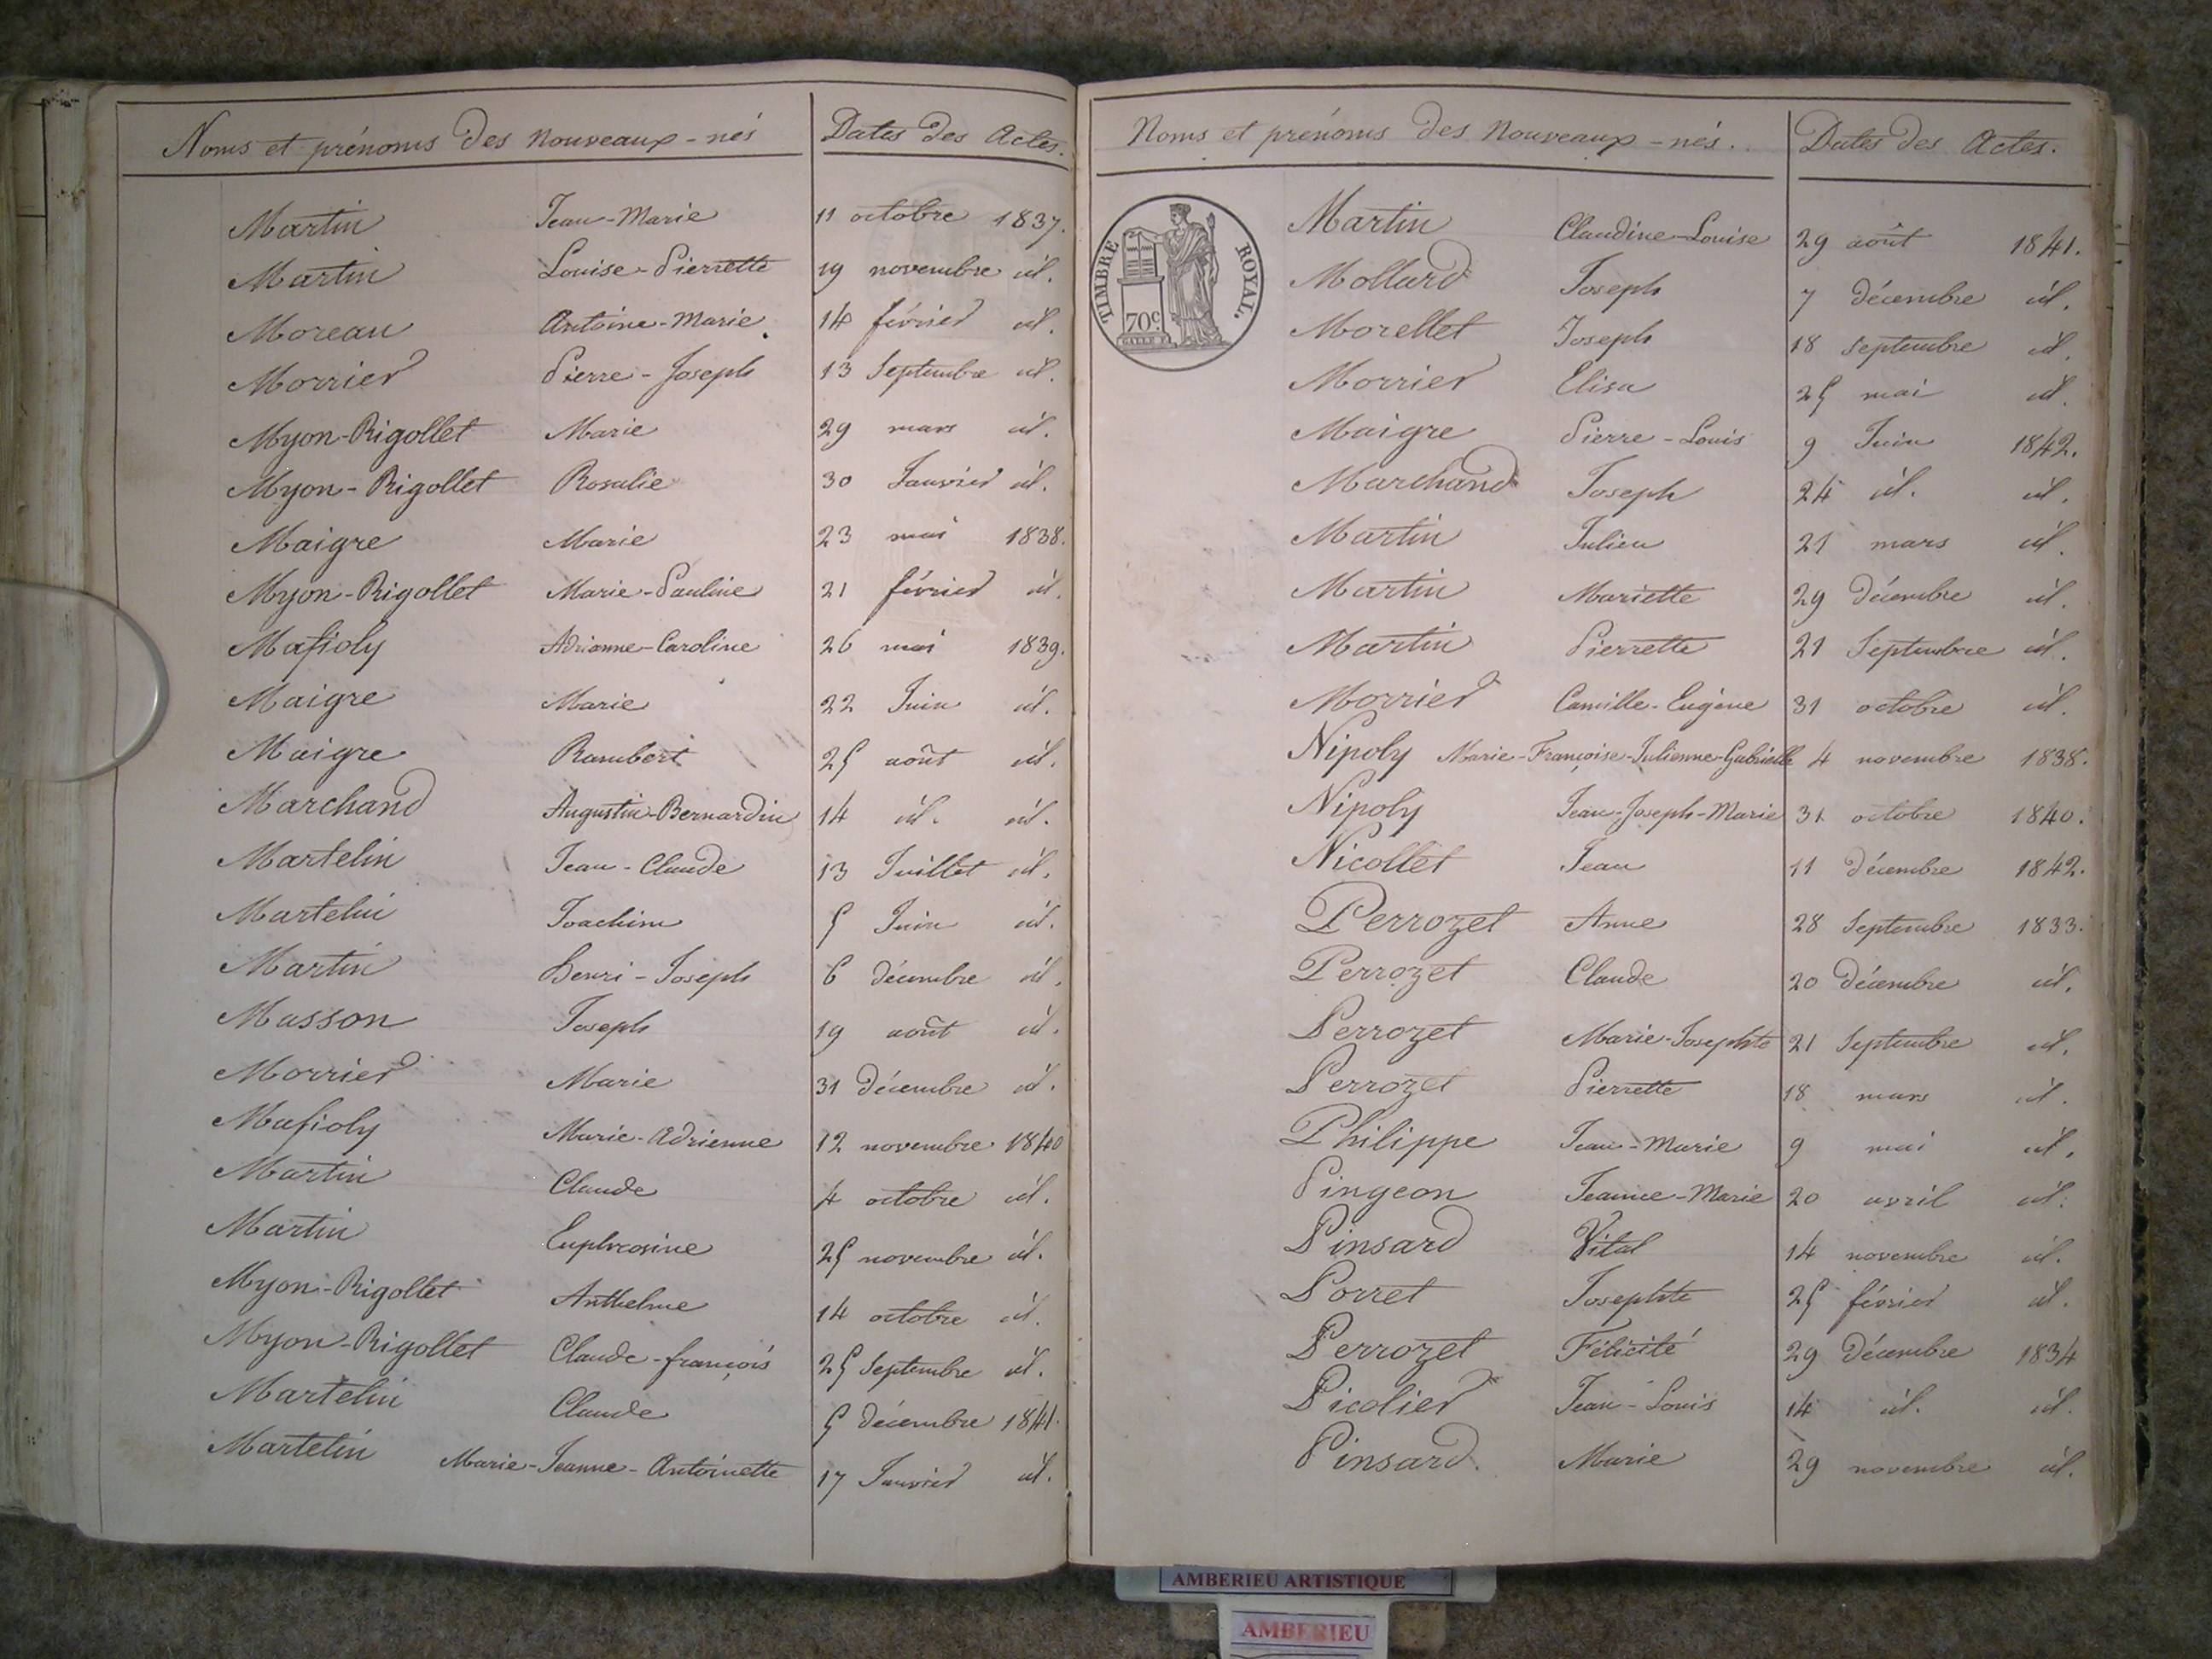 Noms et prénoms des nouveaux-nés Dates des Actes.
Martin Jean-Marie 11 octobre 1837.
Martin Louise-Pierrette 19 novembre id.
Moreau Antoine-Marie 14 février id.
Morrier Pierre-Joseph 13 Septembre id.
Myon-Rigollet Marie 29 mars id.
Myon-Rigollet Rosalie 30 Janvier id.
Maigre Marie 23 mai 1838.
Myon-Rigollet Marie-Pauline 21 février id.
Mafioly Adrianne-Caroline 26 mai 1839.
Maigre Marie 22 Juin id.
Maigre Rambert 25 août id.
Marchand Augustin-Bernardin 14 id. id.
Martelin Jean-Claude 13 Juillet id.
Martelin Joachim 5 Juin id.
Martin Henri-Joseph 6 décembre id.
Masson Joseph 19 août id.
Morrier Marie 31 décembre id.
Mafioly Marie-Adrienne 12 novembre 1840
Martin Claude 4 octobre id.
Martin Euphrosine 25 novembre id.
Myon-Rigollet Anthelme 14 octobre id.
Myon-Rigollet Claude-françois 25 Septembre id.
Martelin Claude 5 décembre 1841.
Martelin Marie-Jeanne-Antoinette 17 Janvier id.
Noms et prénoms des nouveaux-nés. Dates des Actes.
TIMBRE ROYAL.
70c.
Martin Claudine-Louise 29 août 1841.
Mollard Joseph 7 décembre id.
Morellet Joseph 18 Septembre id.
Morrier Elisa 25 mai id.
Maigre Pierre-Louis 9 Juin 1842.
Marchand Joseph 24 id. id.
Martin Julien 21 mars id.
Martin Mariette 29 décembre id.
Martin Pierrette 21 Septembre id.
Morrier Camille-Eugène 31 octobre id.
Nipoly Marie-Françoise-Julienne-Gabrielle 4 novembre 1838.
Nipoly Jean-Joseph-Marie 31 octobre 1840.
Nicollet Jean 11 décembre 1842.
Perrozet Anne 28 Septembre 1833.
Perrozet Claude 20 décembre id.
Perrozet Marie-Josephte 21 Septembre id.
Perrozet Pierrette 18 mars id.
Philippe Jean-Marie 9 mai id.
Pingeon Jeanne-Marie 20 avril id.
Pinsard Vital 14 novembre id.
Porret Josephte 25 février id.
Perrozet Félicité 29 décembre 1834
Picolier Jean-Louis 14 id. id.
Pinsard. Marie 29 novembre id.
AMBERIEU ARTISTIQUE
AMBERIEU